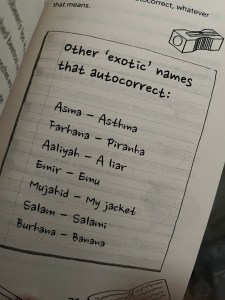 autocorrect, whatever
that means.
Other 'exotic' names
that autocorrect:
Asma – Asthma
Farhana – Piranha
Aaliyah – A liar
Emir – Emu
Mujahid – My jacket
Salam – Salami
Burhana – Banana